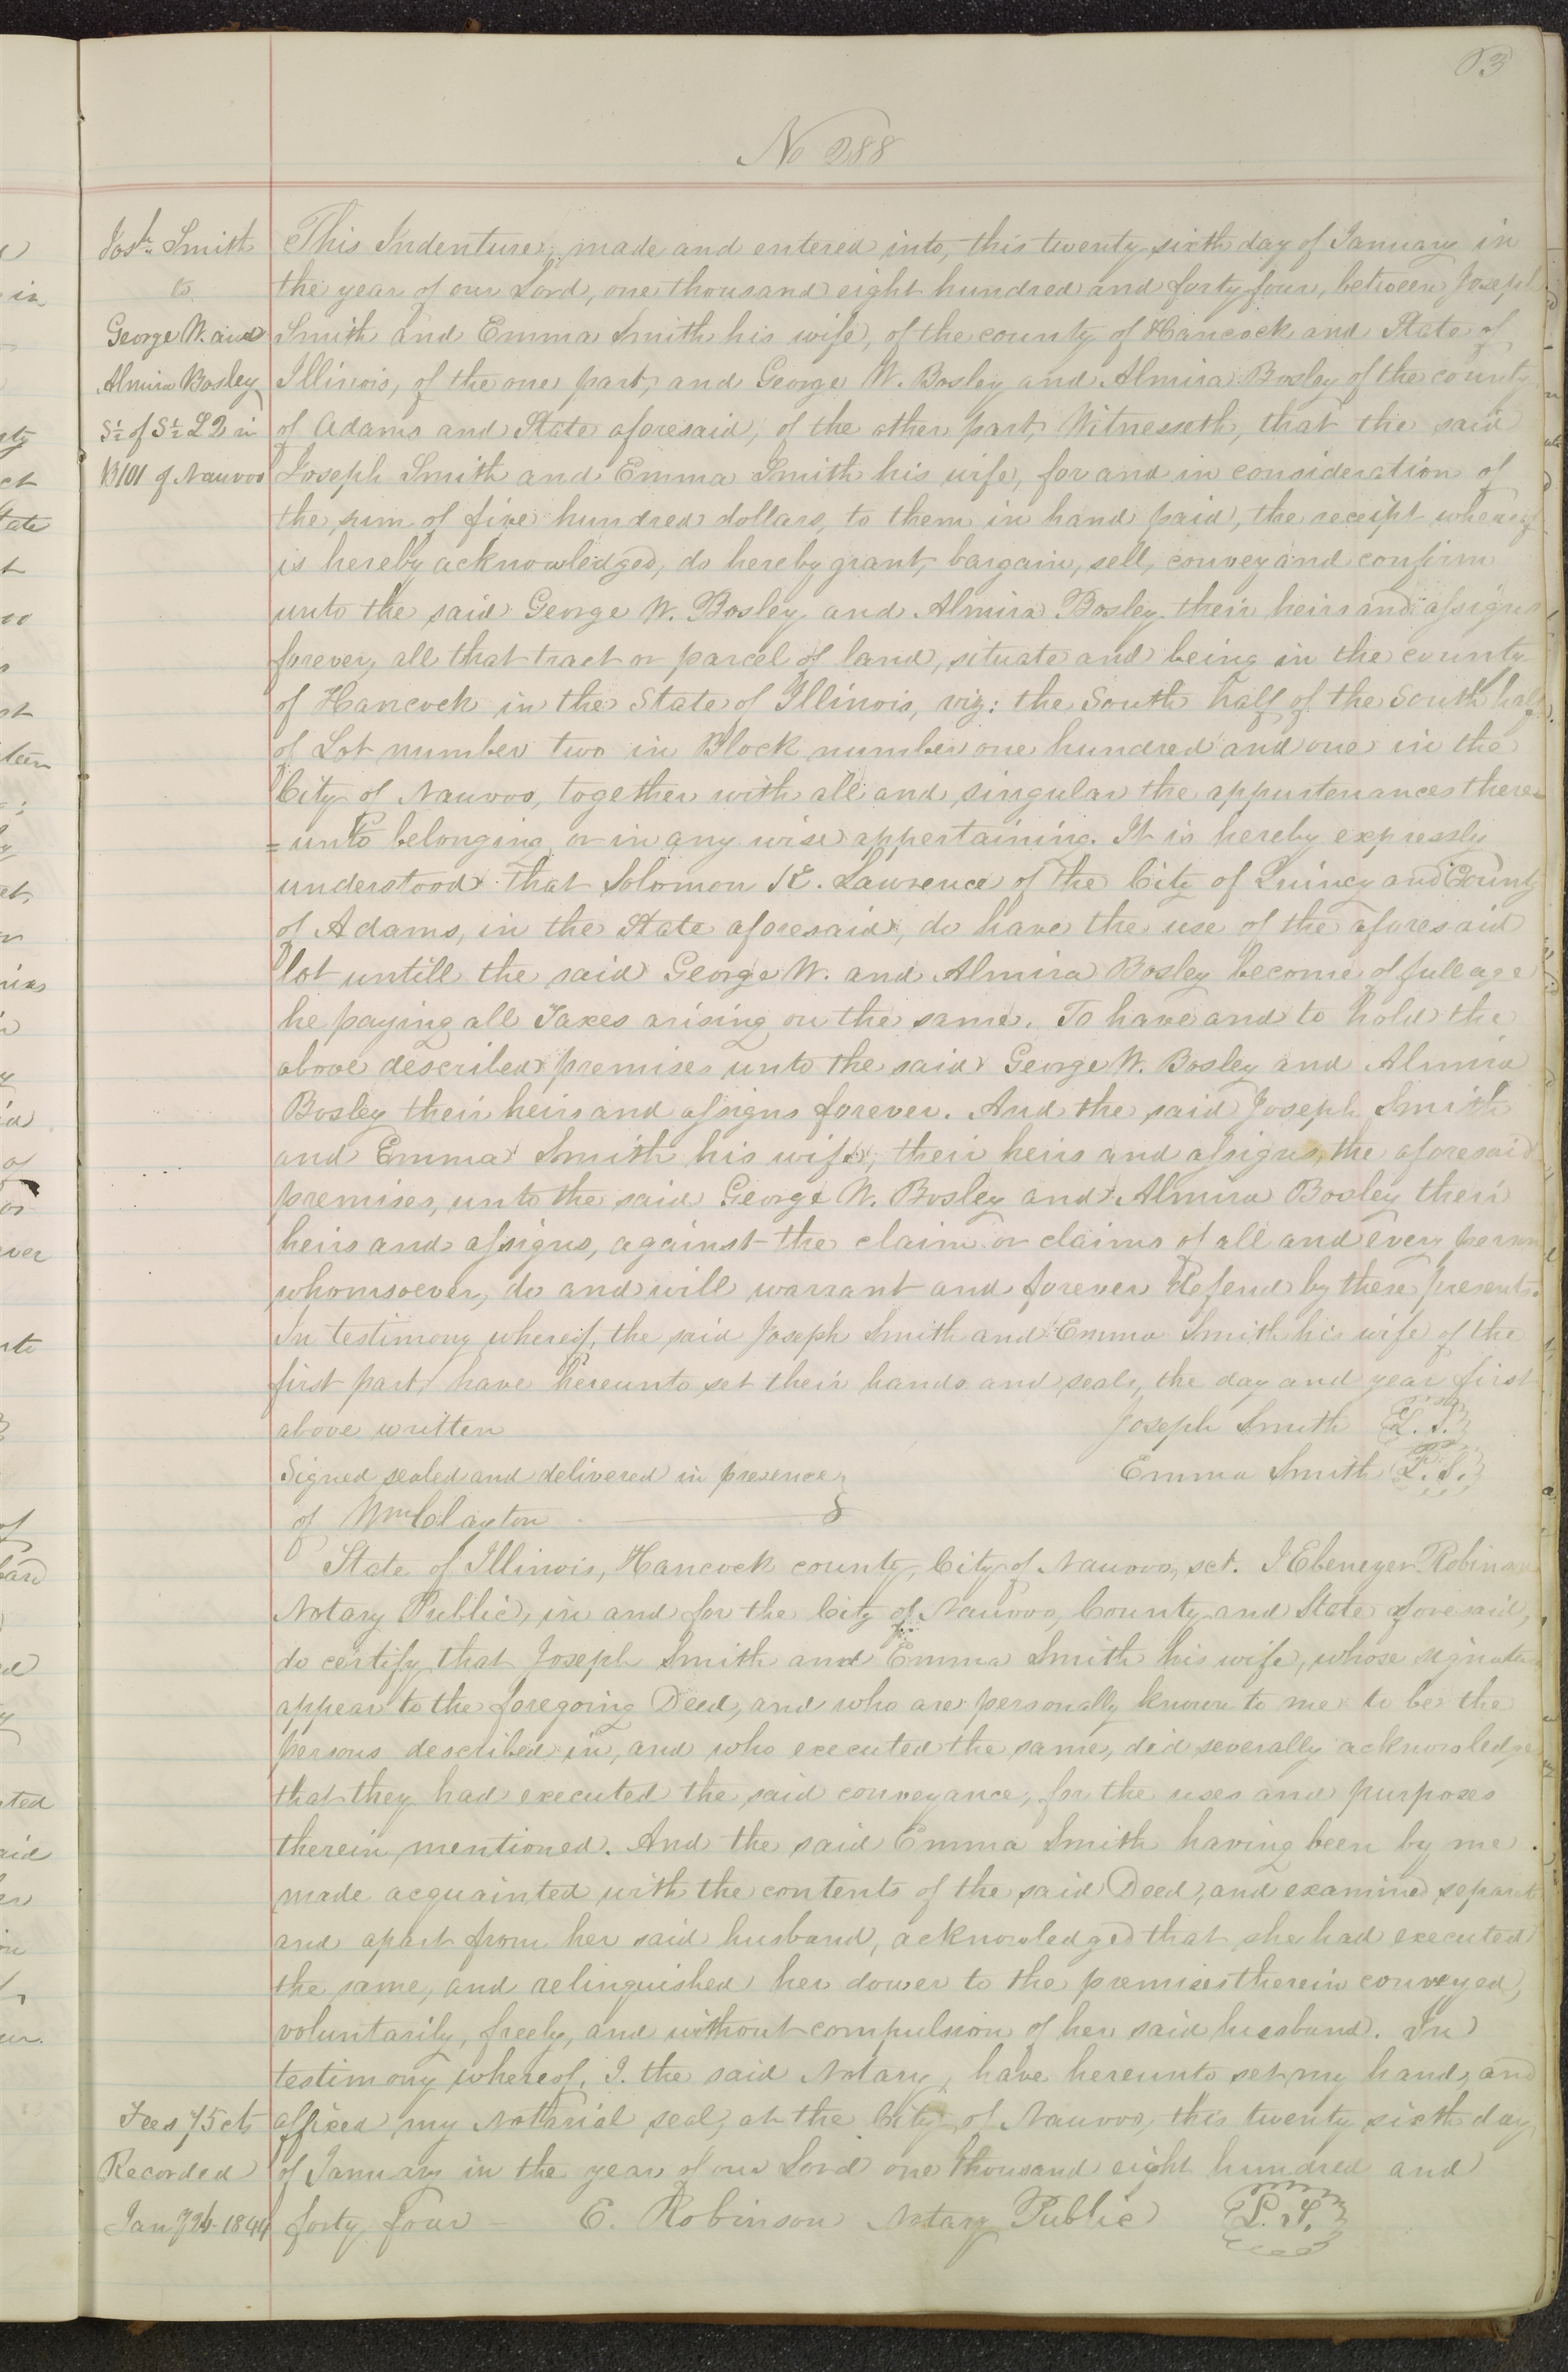 63
No 288
Josh. Smith
to
George W. and
Almira Bosley
S½ of S½ L 2 in
B 101 of Nauvoo
This Indenture, made and entered into, this twenty sixth day of January in
the year of our Lord, one thousand eight hundred and forty four, between Joseph
Smith and Emma Smith his wife, of the county of Hancock and State of
Illinois, of the one part, and George W. Bosley and Almira Bosley of the county
of Adams and State aforesaid, of the other part, Witnesseth, that the said
Joseph Smith and Emma Smith his wife, for and in consideration of
the sum of five hundred dollars, to them in hand paid, the receipt whereof
is hereby acknowledged, do hereby grant, bargain, sell, convey and confirm
unto the said George W. Bosley and Almira Bosley their heirs and assigns
forever, all that tract or parcel of land, situate and being in the county
of Hancock in the State of Illinois, viz: the South half of the South half
of Lot number two in Block number one hundred and one in the
City of Nauvoo, together with all and singular the appurtenances there=
=unto belonging or in any wise appertaining. It is hereby expressly
understood that Solomon K. Lawrence of the City of Quincy and County
of Adams, in the State aforesaid, do have the use of the aforesaid
lot untill the said George W. and Almira Bosley become of full age
he paying all Taxes arising on the same. To have and to hold the
above described premises unto the said George W. Bosley and Almira
Bosley their heirs and assigns forever. And the said Joseph Smith
and Emma Smith his wife, their heirs and assigns, the aforesaid
premises, unto the said George W. Bosley and Almira Bosley their
heirs and assigns, against the claim or claims of all and every person
whomsoever, do and will warrant and forever Defend by these presents.
In testimony whereof, the said Joseph Smith and Emma Smith his wife of the
first part, have hereunto set their hands and seals, the day and year first
above written Joseph Smith L.S.
Signed sealed and delivered in presence Emma Smith L.S.
of Wm Clayton
State of Illinois, Hancock county, City of Nauvoo, sct. I Ebenezer Robinson
Notary Public, in and for the City of Nauvoo, County and State aforesaid,
do certify that Joseph Smith and Emma Smith his wife, whose signatures
appear to the foregoing Deed, and who are personally known to me to be the
persons described in, and who executed the same, did severally acknowledge
that they had executed the said conveyance, for the uses and purposes
therein mentioned. And the said Emma Smith having been by me
made acquainted with the contents of the said Deed, and examined separate
and apart from her said husband, acknowledged that she had executed
the same, and relinquished her dower to the premises therein conveyed,
voluntarily, freely, and without compulsion of her said husband. In
testimony whereof, I. the said Notary, have hereunto set my hand, and
affixed my Notarial seal, at the City of Nauvoo, this twenty sixth day
of January in the year of our Lord one thousand eight hundred and
forty four E. Robinson Notary Public L.S.
Fees 75 cts
Recorded